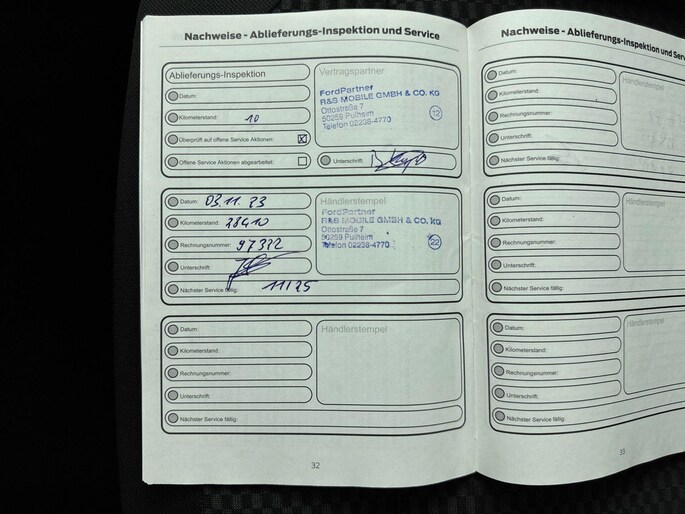 Nachweise - Ablieferungs-Inspektion und Service
Ablieferungs-Inspektion
Datum:
Kilometerstand: 10
Überprüft auf offene Service Aktionen: X
Offene Service Aktionen abgearbeitet:
Vertragspartner
FordPartner
R&S MOBILE GMBH & CO. KG
Ottostraße 7
50259 Pulheim
Telefon 02238-4770
12
Unterschrift:
Datum: 03.11.23
Kilometerstand: 28410
Rechnungsnummer: 97322
Unterschrift:
Nächster Service fällig: 11/25
Händlerstempel
FordPartner
R&S MOBILE GMBH & CO. KG
Ottostraße 7
50259 Pulheim
Telefon 02238-4770
22
Datum:
Kilometerstand:
Rechnungsnummer:
Unterschrift:
Nächster Service fällig:
Händlerstempel
32
Nachweise - Ablieferungs-Inspektion und Serv
Datum:
Kilometerstand:
Rechnungsnummer:
Unterschrift:
Nächster Service fällig:
Händlerstempel
Datum:
Kilometerstand:
Rechnungsnummer:
Unterschrift:
Nächster Service fällig:
Händlerstempel
Datum:
Kilometerstand:
Rechnungsnummer:
Unterschrift:
Nächster Service fällig:
Händlerstempel
33